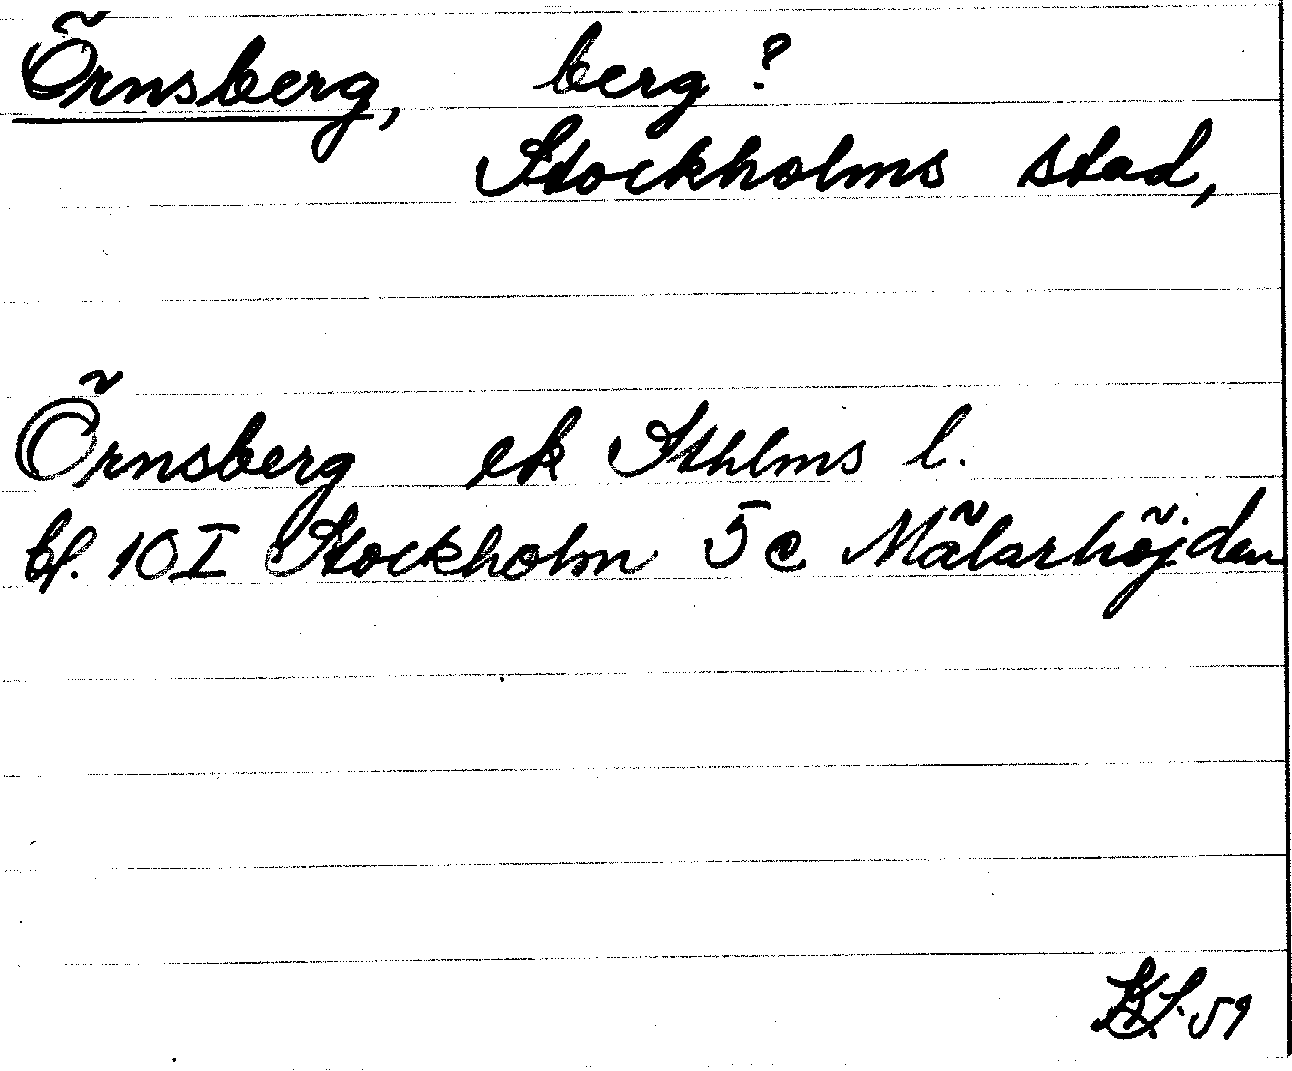 Örnsberg, berg?
Stockholms stad,
Örnsberg ek Sthlms l.
bl. 10 I Stockholm 5 c Mälarhöjden
59